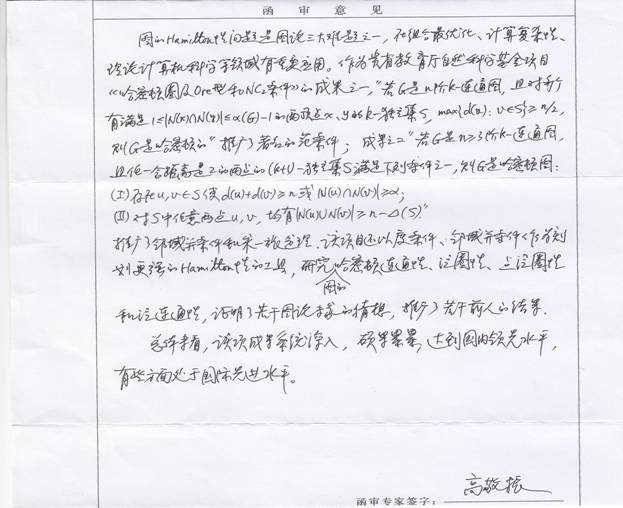 函 审 意 见
图的Hamilton性问题是图论三大难题之一，在组合最优化、计算复杂性、
理论计算机科学等领域有重要应用。作为贵省教育厅自然科学基金项目
《哈密顿图及Ore型和NC2条件》的成果之一，"若G是n阶k-连通图，且对所
有满足1≤|N(x)∩N(y)|≤α(G)-1的两顶点x、y的k-独立集S，max{d(u): u∈S}≥n/2，
则G是哈密顿的"推广了著名的范条件；成果之二"若G是n≥3阶k-连通图，
且任一含距离是2的两点的(k+1)-独立集S满足下列条件之一，则G是哈密顿图：
(I)存在u,v∈S使d(u)+d(v)≥n或|N(u)∩N(v)|≥α；
(II)对S中任意两点u,v，均有|N(u)∪N(v)|≥n-Δ(S)."
推广了邻域并条件和某一般定理。该项目还以度条件、邻域并条件作为刻
划更强的Hamilton性的工具，研究图的哈密顿连通性、泛圈性、点泛圈性
和泛连通性，证明了若干图论专家的猜想，推广了若干前人的结果.
总体来看，该项成果系统深入，硕果累累，达到国内领先水平，
有些方面处于国际先进水平。
高敬振
函审专家签字：